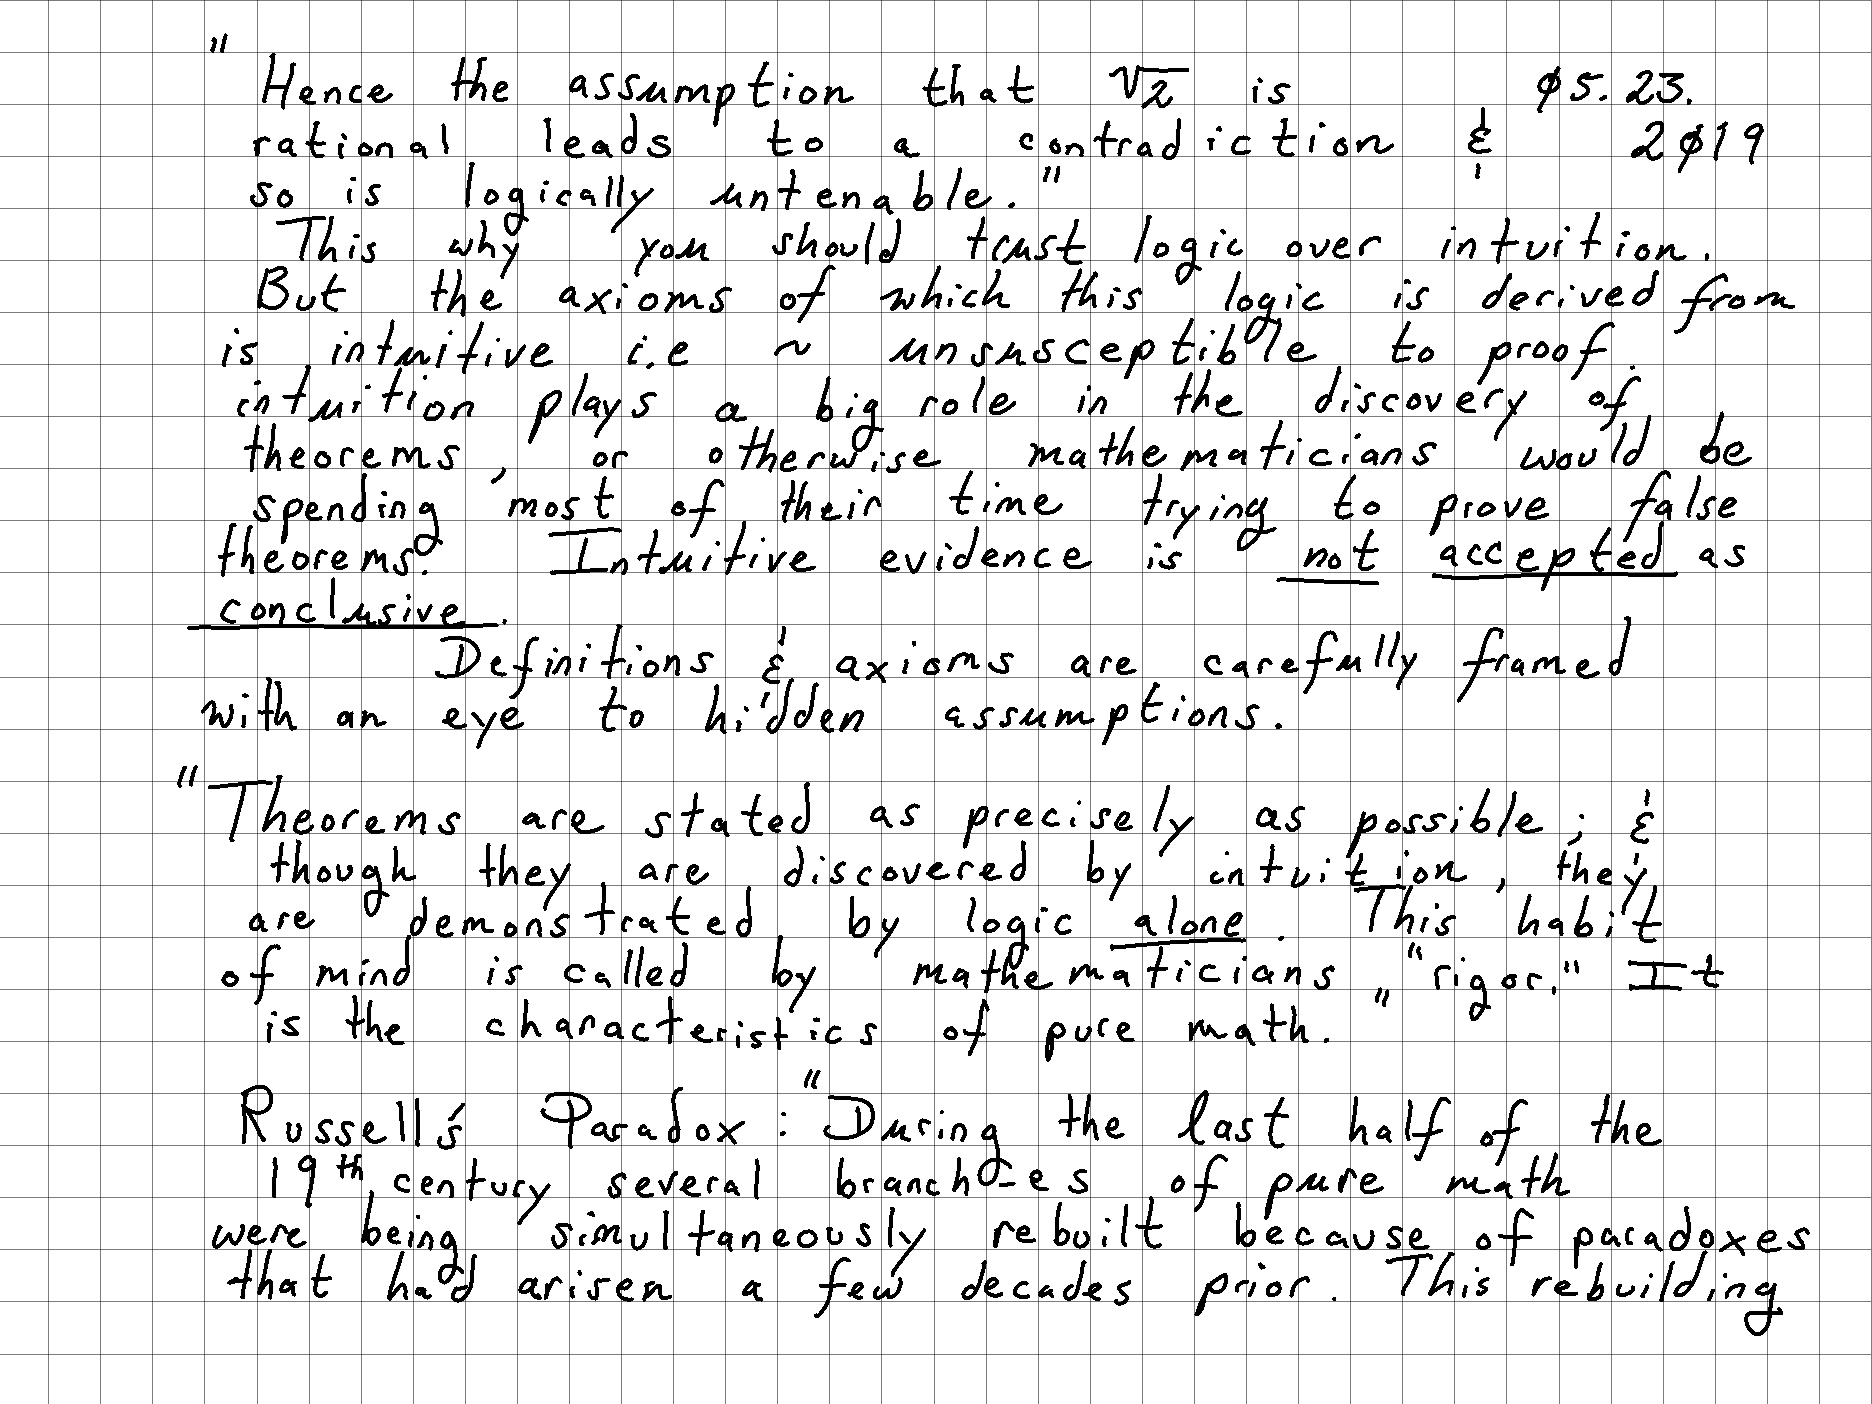 "Hence the assumption that √2 is
rational leads to a contradiction &
so is logically untenable."
ø5.23.
2ø19
This why you should trust logic over intuition.
But the axioms of which this logic is derived from
is intuitive i.e ~ unsusceptible to proof.
intuition plays a big role in the discovery of
theorems, or otherwise mathematicians would be
spending most of their time trying to prove false
theorems. Intuitive evidence is not accepted as
conclusive.
Definitions & axioms are carefully framed
with an eye to hidden assumptions.
"Theorems are stated as precisely as possible; &
though they are discovered by intuition, they
are demonstrated by logic alone. This habit
of mind is called by mathematicians "rigor." It
is the characteristics of pure math."
Russell's Paradox: "During the last half of the
19th century several branch-es of pure math
were being simultaneously rebuilt because of paradoxes
that had arisen a few decades prior. This rebuilding